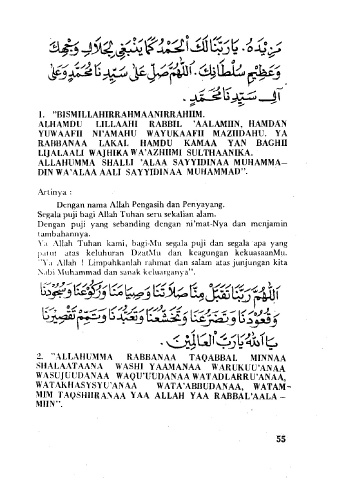 مَزِيْدَهُ. يَارَبَّنَا لَكَ الْحَمْدُ كَمَا يَنْبَغِى لِجَلَالِ وَجْهِكَ
وَعَظِيْمِ سُلْطَانِكَ. اَللّٰهُمَّ صَلِّ عَلٰى سَيِّدِنَا مُحَمَّدٍ وَعَلٰى
آلِ سَيِّدِنَا مُحَمَّدٍ.
1. "BISMILLAHIRRAHMAANIRRAHIIM.
ALHAMDU LILLAAHI RABBIL 'AALAMIIN, HAMDAN
YUWAAFII NI'AMAHU WAYUKAAFII MAZIIDAHU. YA
RABBANAA LAKAL HAMDU KAMAA YAN BAGHII
LIJALAALI WAJHIKA WA'AZHIIMI SULTHAANIKA.
ALLAHUMMA SHALLI 'ALAA SAYYIDINAA MUHAMMA–
DIN WA'ALAA AALI SAYYIDINAA MUHAMMAD".
Artinya :
Dengan nama Allah Pengasih dan Penyayang.
Segala puji bagi Allah Tuhan seru sekalian alam.
Dengan puji yang sebanding dengan ni'mat-Nya dan menjamin
tambahannya.
Ya Allah Tuhan kami, bagi-Mu segala puji dan segala apa yang
patut atas keluhuran DzatMu dan keagungan kekuasaanMu.
"Ya Allah ! Limpahkanlah rahmat dan salam atas junjungan kita
Nabi Muhammad dan sanak keluarganya".
اَللّٰهُمَّ رَبَّنَا تَقَبَّلْ مِنَّا صَلَاتَنَا وَصِيَامَنَا وَرُكُوْعَنَا وَسُجُوْدَنَا
وَقُعُوْدَنَا وَتَضَرُّعَنَا وَتَخَشُّعَنَا وَتَعَبُّدَنَا وَتَمِّمْ تَقْصِيْرَنَا
يَا اَللّٰهُ يَارَبَّ الْعَالَمِيْنَ.
2. "ALLAHUMMA RABBANAA TAQABBAL MINNAA
SHALAATAANA WASHI YAAMANAA WARUKUU'ANAA
WASUJUUDANAA WAQU'UUDANAA WATADLARRU'ANAA,
WATAKHASYSYU'ANAA WATA'ABBUDANAA, WATAM–
MIM TAQSHIIRANAA YAA ALLAH YAA RABBAL'AALA –
MIIN".
55